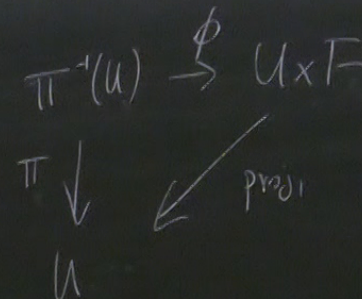 ϕ
π⁻¹(U) → U×F
π ↓ ↙ proj₁
U